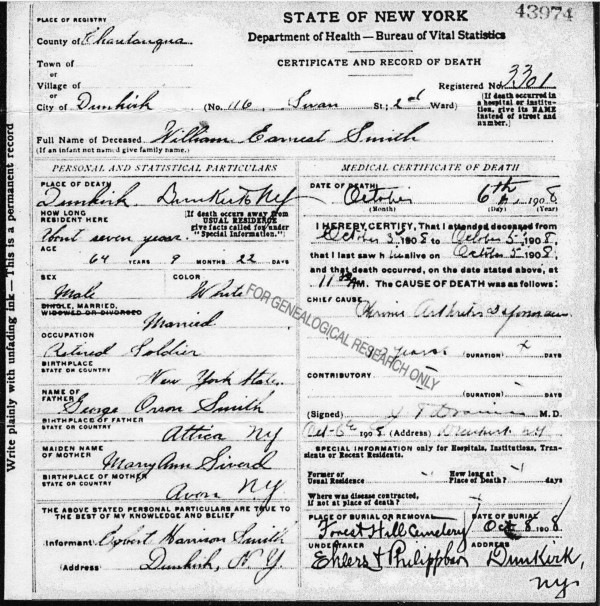 43974
STATE OF NEW YORK
Department of Health — Bureau of Vital Statistics
CERTIFICATE AND RECORD OF DEATH
PLACE OF REGISTRY
County of Chautauqua
Town of
or
Village of
or
City of Dunkirk (No. 116, Swan St.; 2nd Ward)
Registered No. 3301
[If death occurred in a hospital or institution, give its NAME instead of street and number.]
Full Name of Deceased William Earnest Smith
(If an infant not named give family name.)
Write plainly with unfading ink — This is a permanent record
PERSONAL AND STATISTICAL PARTICULARS
PLACE OF DEATH
Dunkirk Dunkirk NY
HOW LONG RESIDENT HERE
About seven years.
[If death occurs away from USUAL RESIDENCE give facts called for under "Special Information."]
AGE
64 YEARS 9 MONTHS 22 DAYS
SEX
Male
COLOR
White
SINGLE, MARRIED, WIDOWED OR DIVORCED
Married
OCCUPATION
Retired Soldier
BIRTHPLACE
STATE OR COUNTRY
New York State.
NAME OF FATHER
George Orson Smith
BIRTHPLACE OF FATHER
STATE OR COUNTRY
Attica NY
MAIDEN NAME OF MOTHER
Mary Ann
BIRTHPLACE OF MOTHER
STATE OR COUNTRY
Avon N.Y
THE ABOVE STATED PERSONAL PARTICULARS ARE TRUE TO THE BEST OF MY KNOWLEDGE AND BELIEF
Informant Robert Harrison Smith
(Address) Dunkirk, N. Y.
MEDICAL CERTIFICATE OF DEATH
DATE OF DEATH
October 6th 1908
(Month) (Day) (Year)
I HEREBY CERTIFY, That I attended deceased from
October 3, 1908 to October 5, 1908,
that I last saw him alive on October 5, 1908,
and that death occurred, on the date stated above, at
11 30 A M. The CAUSE OF DEATH was as follows:
CHIEF CAUSE
Arthritis Deformans
years (DURATION) DAYS
CONTRIBUTORY
(DURATION) DAYS
(Signed) M.D.
Oct-6th 1908 (Address) Dunkirk N.Y
FOR GENEALOGICAL RESEARCH ONLY
SPECIAL INFORMATION only for Hospitals, Institutions, Transients or Recent Residents.
Former or Usual Residence
How long at Place of Death? days
Where was disease contracted, if not at place of death?
PLACE OF BURIAL OR REMOVAL
Forest Hill Cemetery
DATE OF BURIAL
Oct 8 1908
UNDERTAKER
Ehlers & Philippbar
ADDRESS
Dunkirk, NY